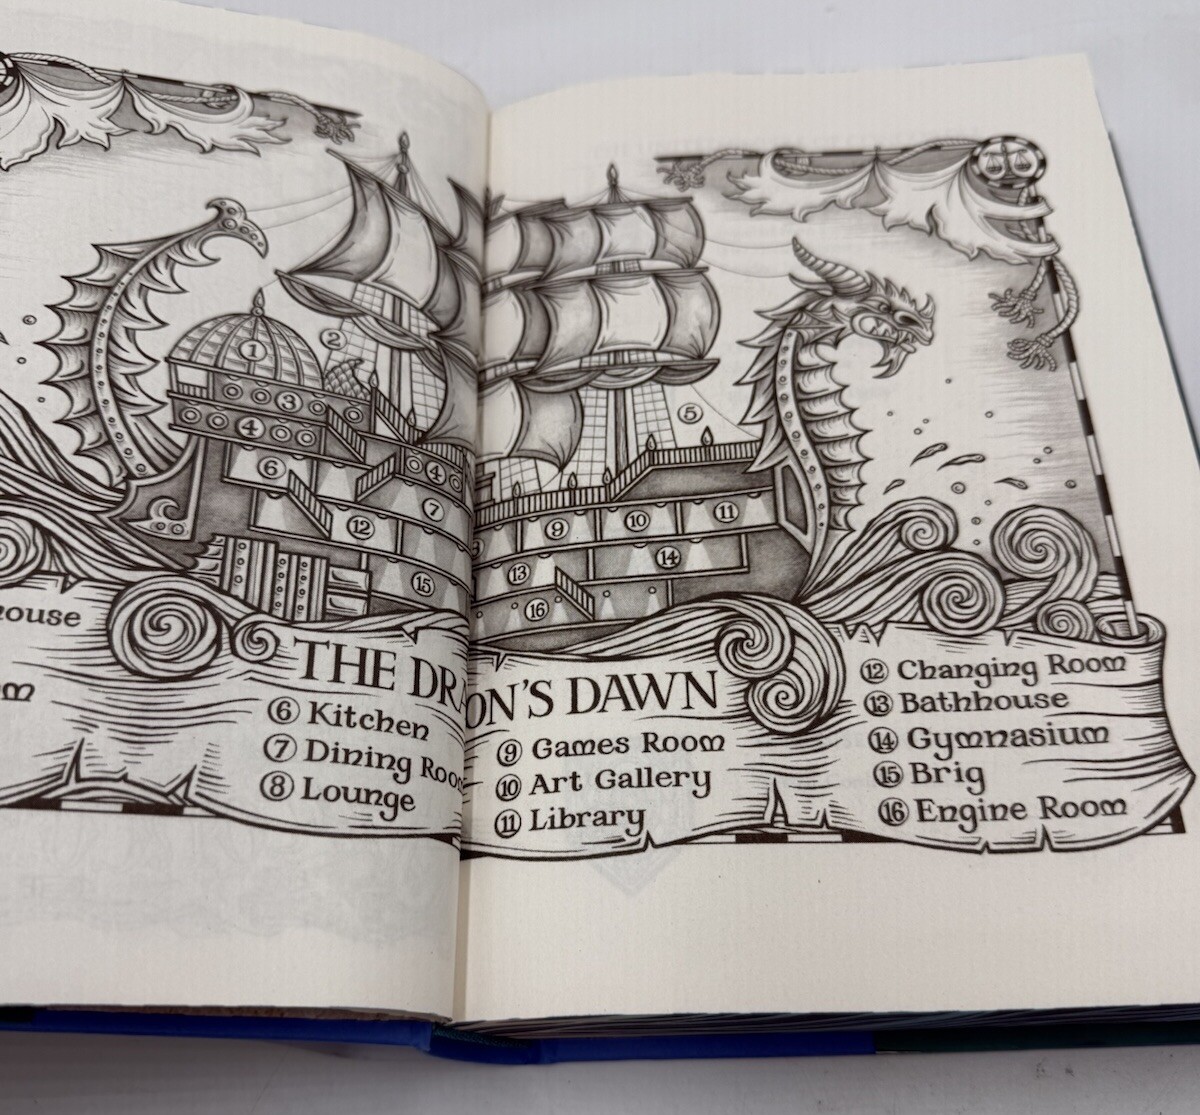 1
2
3
4
6
4
7
12
15
5
9
10
11
13
14
16
THE DRAGON'S DAWN
house
om
6 Kitchen
7 Dining Roo
8 Lounge
9 Games Room
10 Art Gallery
11 Library
12 Changing Room
13 Bathhouse
14 Gymnasium
15 Brig
16 Engine Room